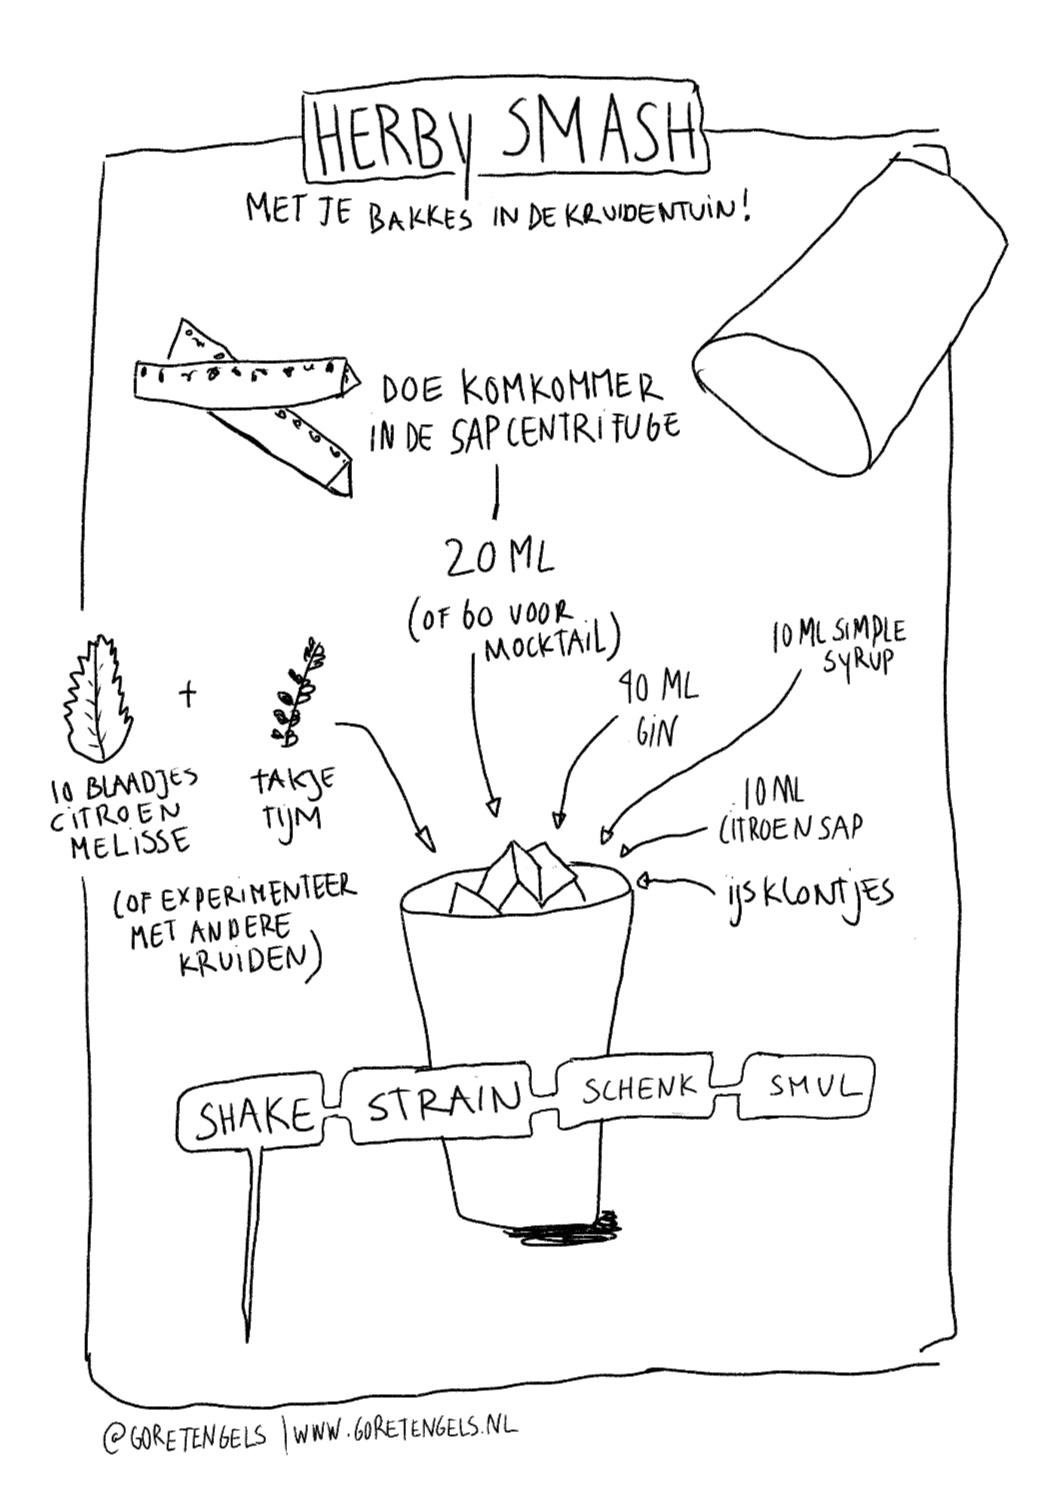 HERBY SMASH
MET JE BAKKES IN DE KRUIDENTUIN!
DOE KOMKOMMER
IN DE SAPCENTRIFUGE
20 ML
(OF 60 VOOR
MOCKTAIL)
10 ML SIMPLE
SYRUP
40 ML
GIN
10 ML
CITROENSAP
IJSKLONTJES
+
10 BLAADJES
CITROEN
MELISSE
TAKJE
TIJM
(OF EXPERIMENTEER
MET ANDERE
KRUIDEN)
SHAKE
STRAIN
SCHENK
SMUL
@GORETENGELS | WWW.GORETENGELS.NL